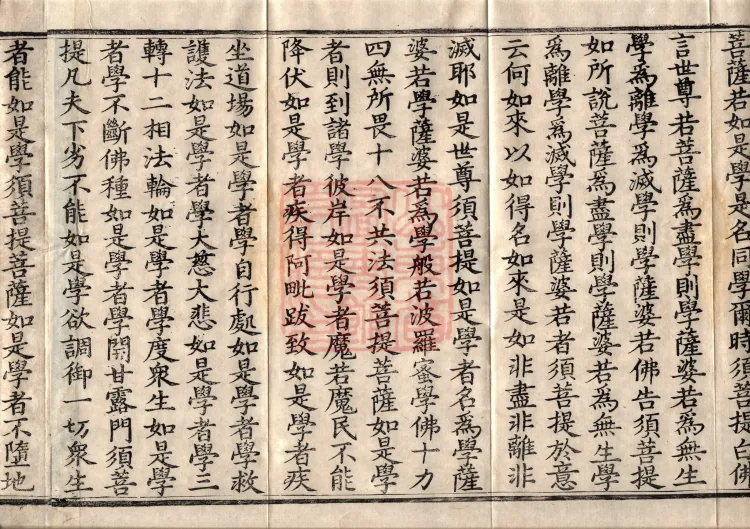 菩薩若如是學是名同學爾時須菩提白佛
言世尊若菩薩爲盡學則學薩婆若爲無生
學爲離學爲滅學則學薩婆若佛告須菩提
如所說菩薩爲盡學則學薩婆若爲無生學
爲離學爲滅學則學薩婆若者須菩提於意
云何如來以如得名如來是如非盡非離非
滅耶如是世尊須菩提如是學者名爲學薩
婆若學薩婆若爲學般若波羅蜜學佛十力
四無所畏十八不共法須菩提菩薩如是學
者則到諸學彼岸如是學者魔若魔民不能
降伏如是學者疾得阿毗跋致如是學者疾
坐道場如是學者學自行處如是學者學救
護法如是學者學大慈大悲如是學者學三
轉十二相法輪如是學者學度衆生如是學
者學不斷佛種如是學者學開甘露門須菩
提凡夫下劣不能如是學欲調御一切衆生
者能如是學須菩提菩薩如是學者不墮地